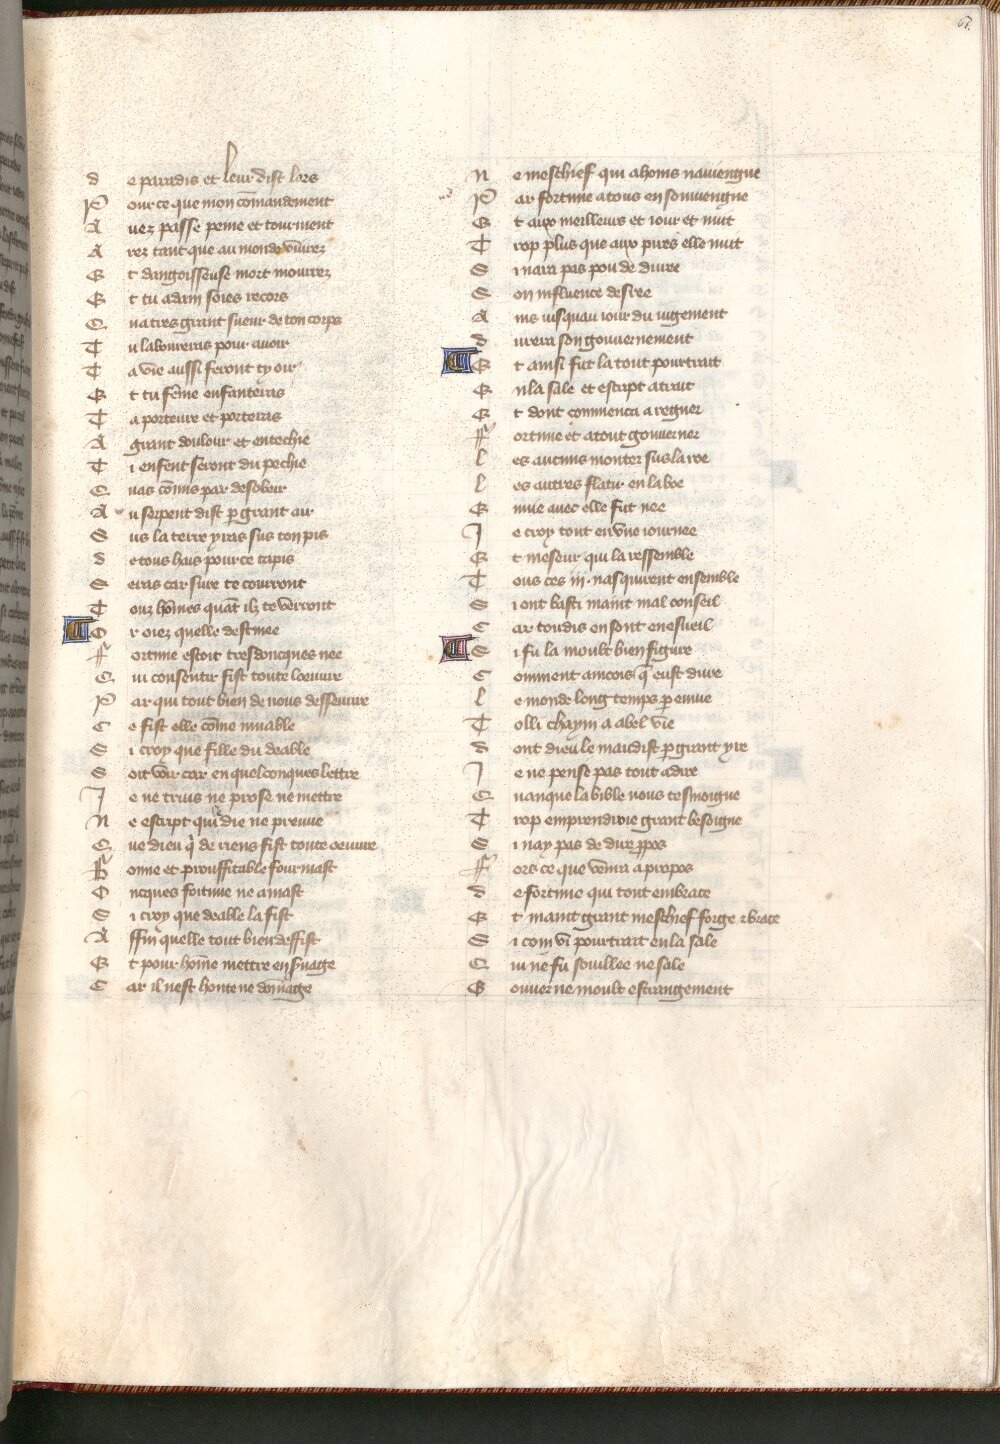 67
De paradis et leur dist lors
Pour ce que mon cōmandement
Auez passe peine et tourment
Arez tant que au monde viurez
Et dangoisseuse mort mourrez
Et tu adam soies recors
Qua tres grant sueur de ton corps
Tu laboureras pour auoir
Ta vie aussi feront ty oir
Et tu fēme enfanteras
Ta porteure et porteras
A grant doulour et entechie
Ti enfent seront du pechie
Quas cōmis par desobeir
Au serpent dist ꝑ grant air
Sus la terre yras sus ton pis
de tous hais pour ce tapis
Seras car sure te courront
Touz hōmes quāt ilz te verront
Or oiez quelle destinee
Fortune estoit tres doncques nee
Qui consentir fist toute loeuure
Par qui tout bien de nous desseuure
Ce fist elle cōme muable
Si croy que fille du deable
Soit voir car en quelconques lettre
Je ne truis ne prose ne mettre
Ne escript qui die ne preuue
Que dieu q̄ de riens fist toute oeuure
Bonne et prouffitable fourmast
Oncques fortune ne amast
Si croy que deable la fist
Affin quelle tout bien deffist
Et pour hōme mettre en seruage
Car il nest honte ne dōmage
Ne meschief qui a homs nauiengne
Par fortune a tous en souuiengne
Et aux meilleurs et iour et nuit
Trop plus que aux pires elle nuit
Si nara pas pou de duree
Son influence desree
Ains iusquau iour du iugement
durera son gouuernement
Et ainsi fut la tout pourtrait
En la sale et escript a trait
Et dont commenca a regner
Fortune et a tout gouuerner
les aucuns monter sus la roe
les autres flatir en la boe
Enuie auec elle fut nee
Je croy tout en vne iournee
Et meseur qui la ressemble
Tous ces .iii. nasquirent ensemble
Si ont basti maint mal conseil
Car toudis en sont en esueil
Si fu la moult bien figure
Comment aincois q̄ eust dure
le monde long temps ꝑ enuie
Tolli chaym a abel vie
dont dieu le maudist ꝑ grant yre
Je ne pense pas tout a dire
Quanque la bible nous tesmoigne
Trop emprendroie grant besoigne
Si nay pas de dire ꝓpos
Fors ce que venra a propos
de fortune qui tout embrace
Et maint grant meschief forge & brace
Si com vi pourtrait en la sale
Qui ne fu souillee ne sale
Gouuerne moult estrangement